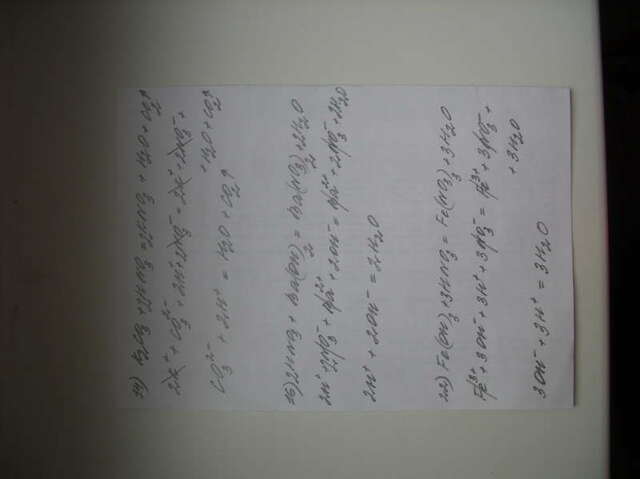 K₂CO₃ + 2HNO₃ = 2KNO₃ + H₂O + CO₂↑
2K⁺ + CO₃²⁻ + 2H⁺ + 2NO₃⁻ = 2K⁺ + 2NO₃⁻ +
+ H₂O + CO₂↑
CO₃²⁻ + 2H⁺ = H₂O + CO₂↑
2HNO₃ + = + 2H₂O
2H⁺ + 2NO₃⁻ + + 2OH⁻ = + 2NO₃⁻ + 2H₂O
2H⁺ + 2OH⁻ = 2H₂O
Fe(OH)₃ + 3HNO₃ = Fe(NO₃)₃ + 3H₂O
Fe³⁺ + 3OH⁻ + 3H⁺ + 3NO₃⁻ = Fe³⁺ + 3NO₃⁻ +
+ 3H₂O
3OH⁻ + 3H⁺ = 3H₂O